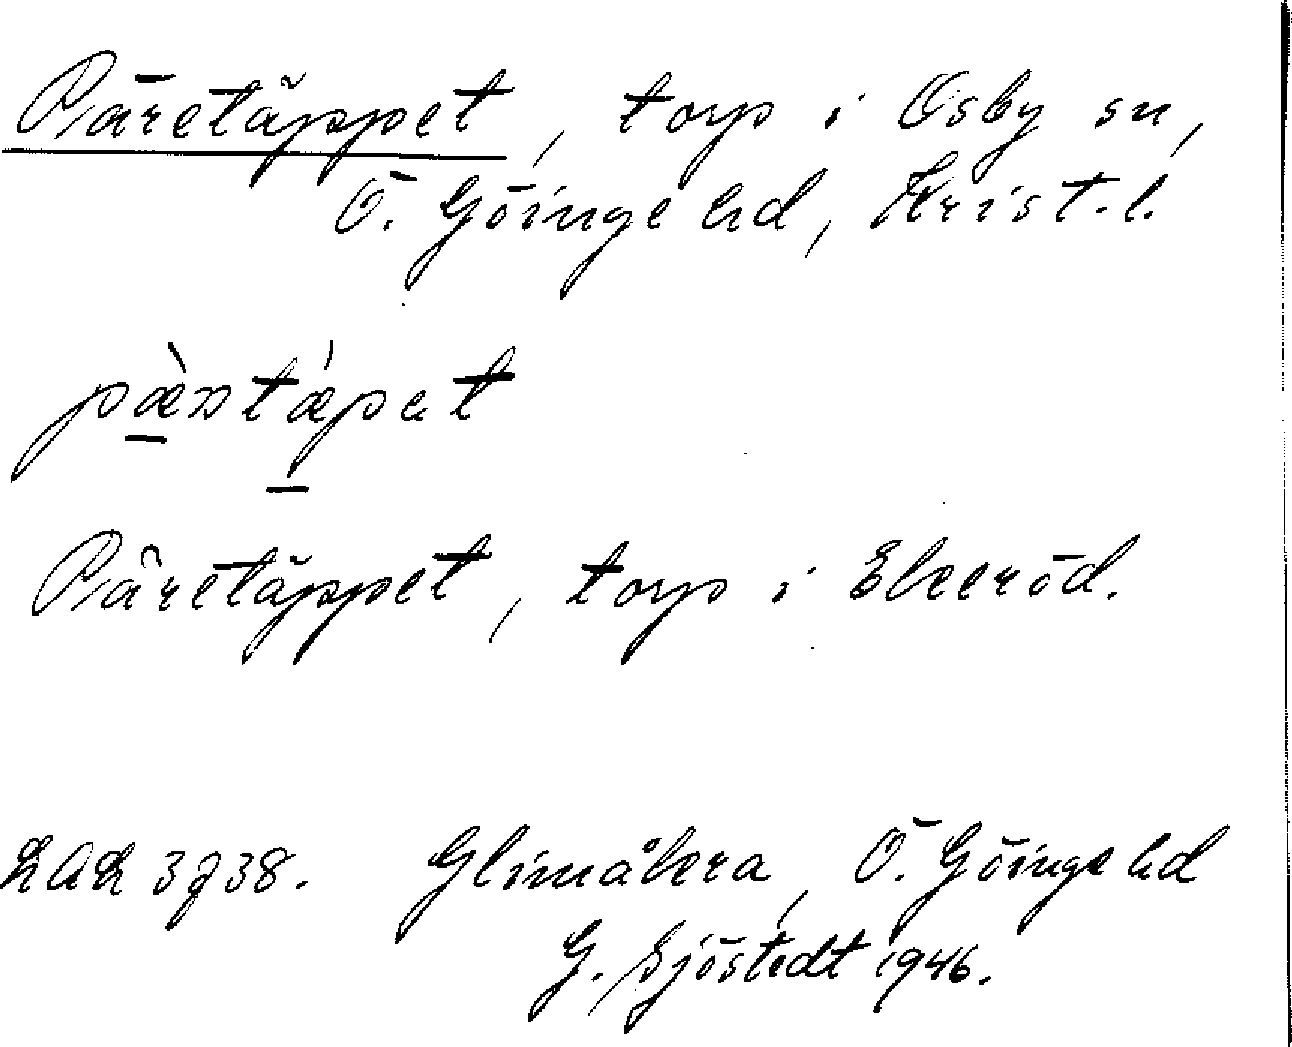 Päretäppet, torp i Osby sn,
Ö. Göinge hd, Krist. l.
Päretäppet, torp i Ekeröd.
LAL 3738. Glimåkra, Ö. Göinge hd
G. Sjöstedt 1946.